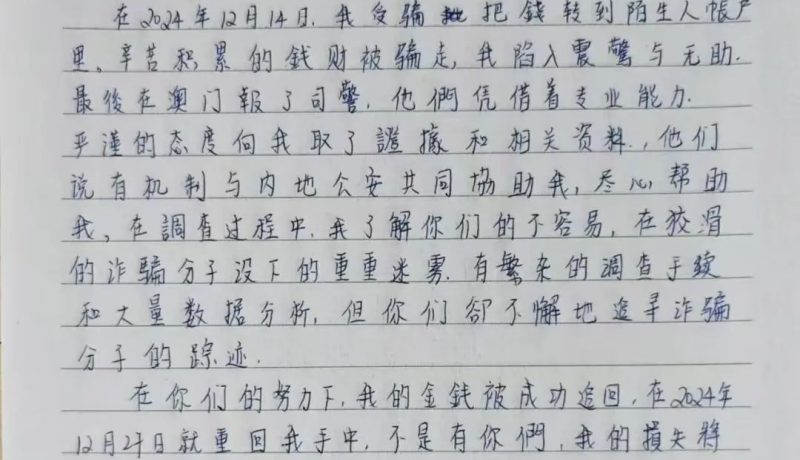 在2024年12月14日,我受騙把錢转到陌生人帳户
里,辛苦积累的錢财被騙走,我陷入震驚与无助.
最後在澳门報了司警,他們凭借着专业能力.
严谨的态度向我取了證據和相关资料.,他们
说有机制与内地公安共同協助我,尽心帮助
我,在調查过程中,我了解你们的不容易,在狡滑
的诈骗分子设下的重重迷雾.有繁杂的調查手续
和大量数据分析,但你们卻不懈地追寻诈骗
分子的踪迹.
在你们的努力下,我的金錢被成功追回,在2024年
12月27日就重回我手中,不是有你們,我的損失將